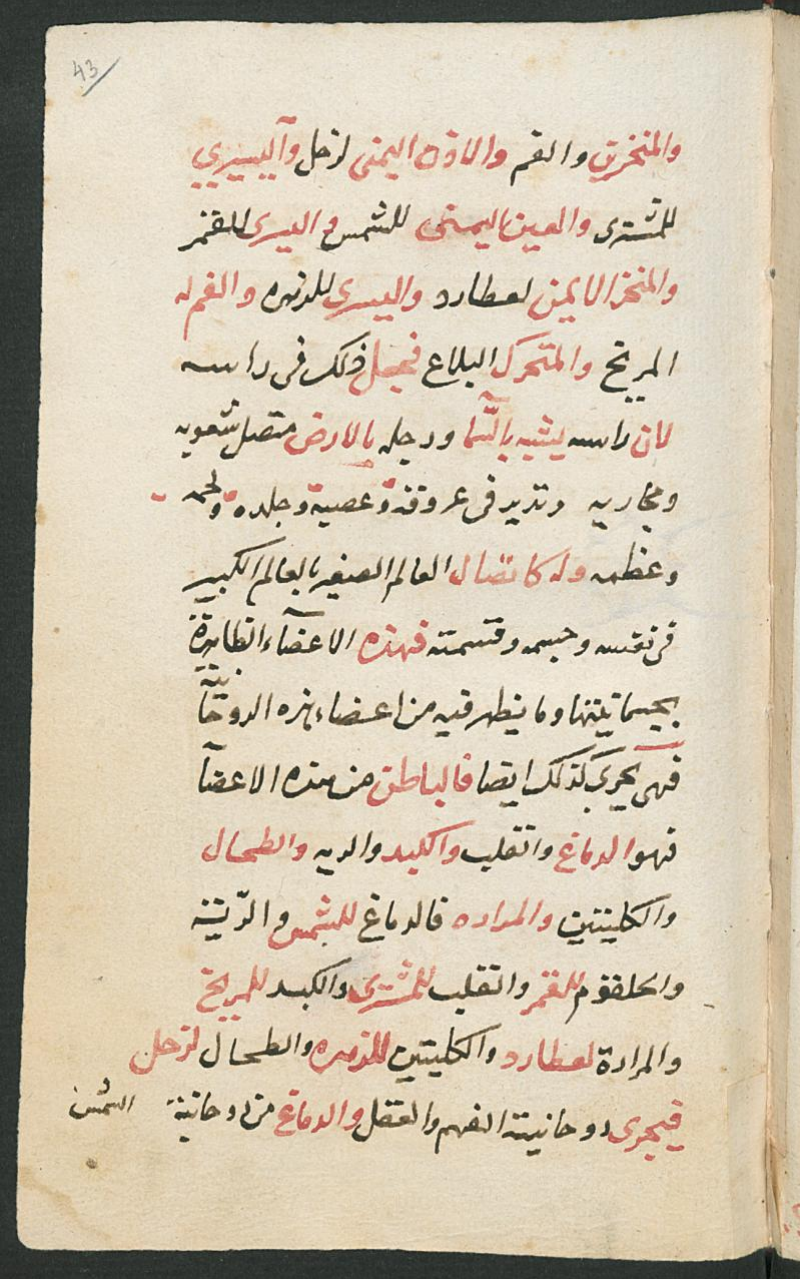 43
والمنخرين والفم والاذن اليمنى لزحل واليسرى
للمشترى والعين اليمنى للشمس واليسرى للقمر
والمنخر الايمن لعطارد واليسرى للزهره والفم له
المريخ والمتحرك البلاغ فجعل ذلك فى راسه
لان راسه يشبه بالسما ورجله بالارض متصل شعوبه
ومجاريه وتدير فى عروقه وعصبه وجلده ولحمه
وعظمه وله كاتصال العالم الصغير بالعالم الكبير
فى نفسه وجسمه وقسمته فهذه الاعضاء الظاهرة
بجسمانيتها وما يظهر فيه من اعضاء هذه الروحانية
فهى يجرى كذلك ايضا فالباطن من هذه الاعضآ
فهو الدماغ والقلب والكبد والريه والطحال
والكليتين والمراره فالدماغ للشمس والريّة
والحلقوم للقمر والقلب للمشترى والكبد للمريخ
والمرارة لعطارد والكليتين للزهره والطحال لزحل
فيجرى روحانية الفهم والعقل والدماغ من روحانية الشمس